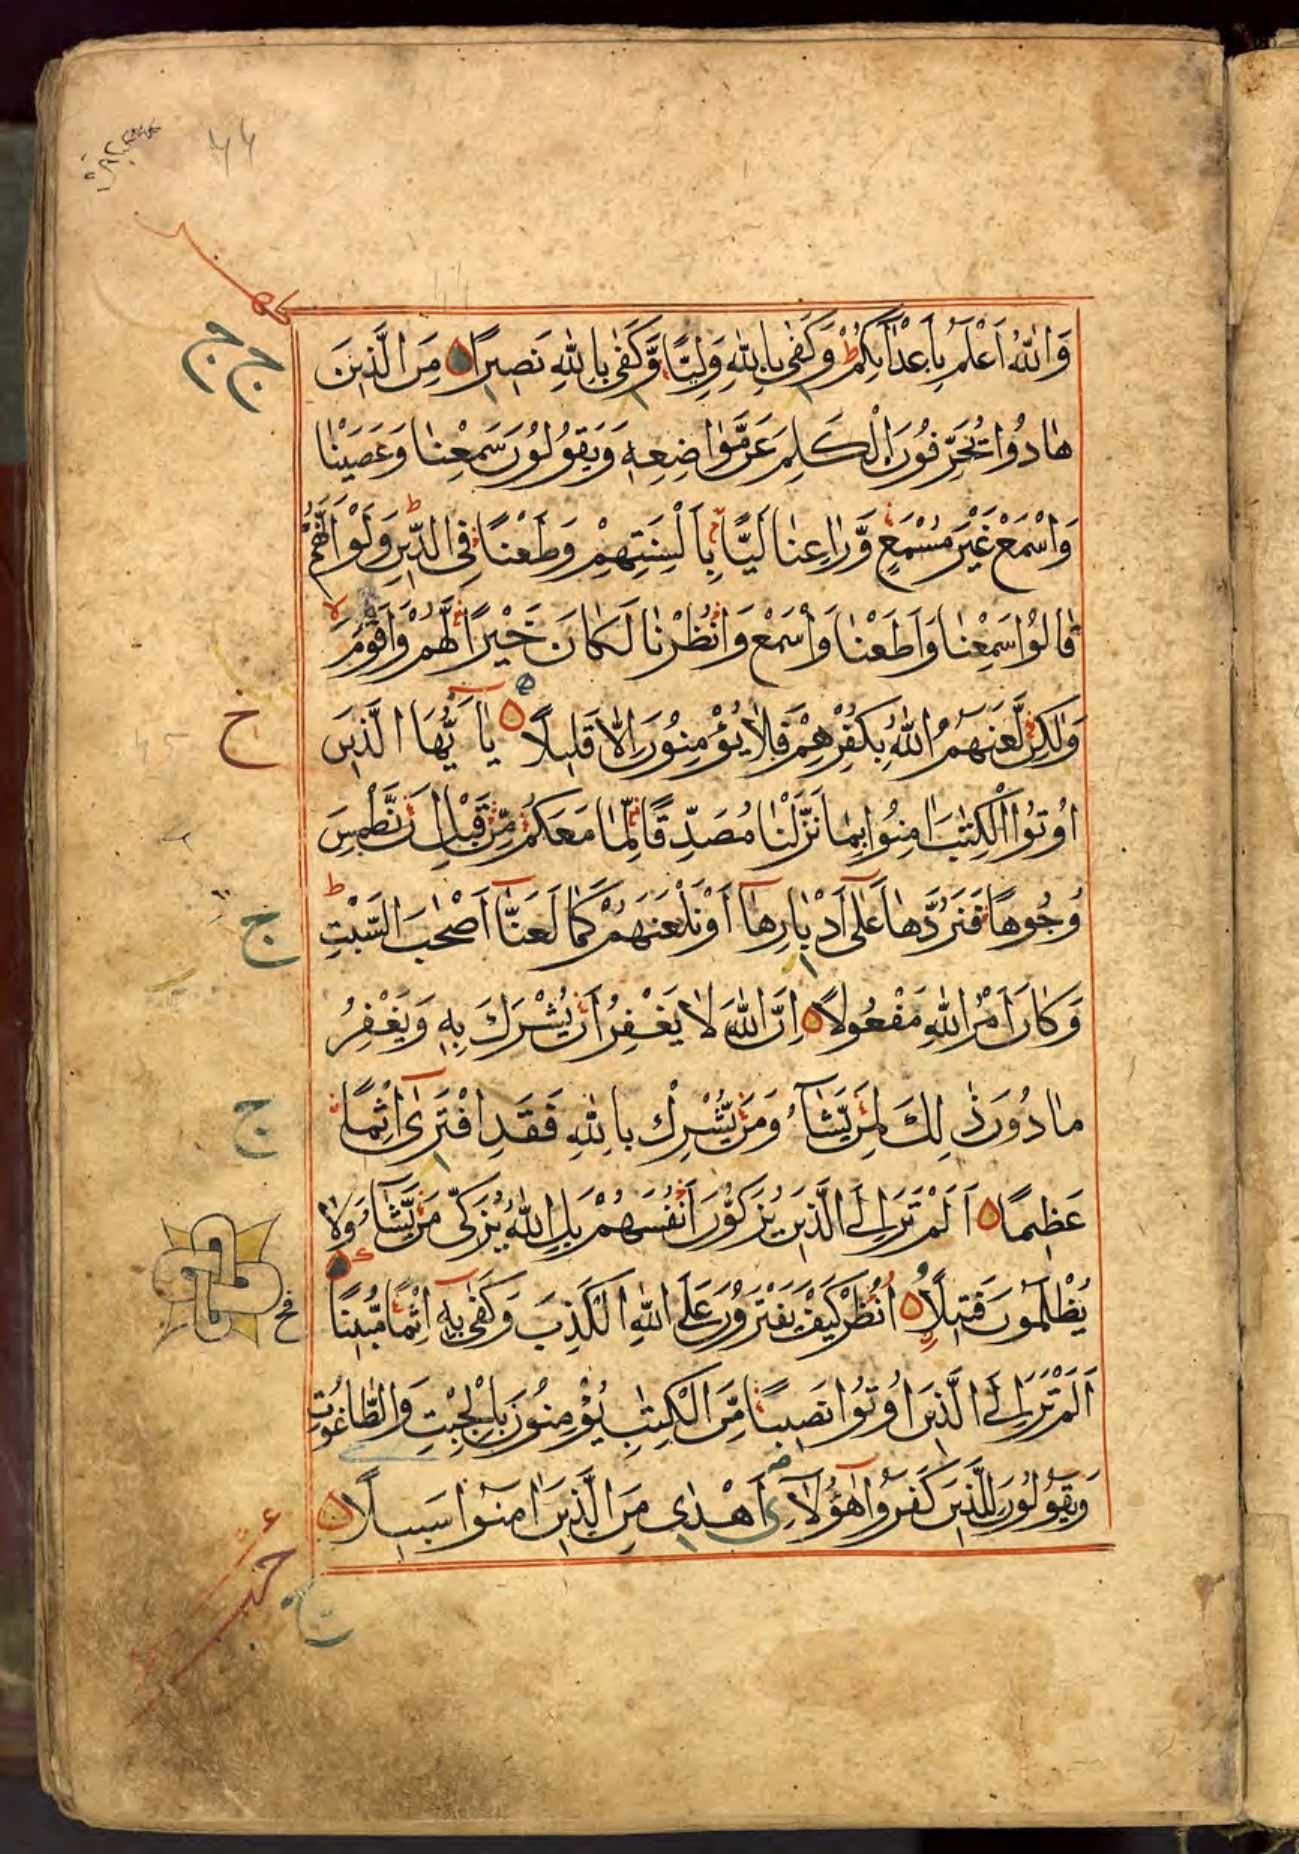 وَاللّٰهُ اَعْلَمُ بِاَعْدَآئِكُمْ ط وَكَفٰى بِاللّٰهِ وَلِيًّا وَّكَفٰى بِاللّٰهِ نَصِيرًا مِنَ الَّذِينَ
هَادُوا يُحَرِّفُونَ الْكَلِمَ عَنْ مَّوَاضِعِهٖ وَيَقُولُونَ سَمِعْنَا وَعَصَيْنَا
وَاسْمَعْ غَيْرَ مُسْمَعٍ وَّرَاعِنَا لَيًّا بِاَلْسِنَتِهِمْ وَطَعْنًا فِى الدِّينِ ط وَلَوْ اَنَّهُمْ
قَالُوا سَمِعْنَا وَاَطَعْنَا وَاسْمَعْ وَانْظُرْنَا لَكَانَ خَيْرًا لَّهُمْ وَاَقْوَمَ لا
وَلٰكِنْ لَّعَنَهُمُ اللّٰهُ بِكُفْرِهِمْ فَلَا يُؤْمِنُونَ اِلَّا قَلِيلًا يَآ اَيُّهَا الَّذِينَ
اُوتُوا الْكِتٰبَ اٰمِنُوا بِمَا نَزَّلْنَا مُصَدِّقًا لِّمَا مَعَكُمْ مِّنْ قَبْلِ اَنْ نَّطْمِسَ
وُجُوهًا فَنَرُدَّهَا عَلٰٓى اَدْبَارِهَآ اَوْ نَلْعَنَهُمْ كَمَا لَعَنَّآ اَصْحٰبَ السَّبْتِ ط
وَكَانَ اَمْرُ اللّٰهِ مَفْعُولًا اِنَّ اللّٰهَ لَا يَغْفِرُ اَنْ يُّشْرَكَ بِهٖ وَيَغْفِرُ
مَا دُونَ ذٰلِكَ لِمَنْ يَّشَآءُ وَمَنْ يُّشْرِكْ بِاللّٰهِ فَقَدِ افْتَرٰٓى اِثْمًا
عَظِيمًا اَلَمْ تَرَ اِلَى الَّذِينَ يُزَكُّونَ اَنْفُسَهُمْ بَلِ اللّٰهُ يُزَكِّى مَنْ يَّشَآءُ وَلَا
يُظْلَمُونَ فَتِيلًا اُنْظُرْ كَيْفَ يَفْتَرُونَ عَلَى اللّٰهِ الْكَذِبَ وَكَفٰى بِهٖٓ اِثْمًا مُّبِينًا
اَلَمْ تَرَ اِلَى الَّذِينَ اُوتُوا نَصِيبًا مِّنَ الْكِتٰبِ يُؤْمِنُونَ بِالْجِبْتِ وَالطَّاغُوتِ
وَيَقُولُونَ لِلَّذِينَ كَفَرُوا هٰٓؤُلَآءِ اَهْدٰى مِنَ الَّذِينَ اٰمَنُوا سَبِيلًا